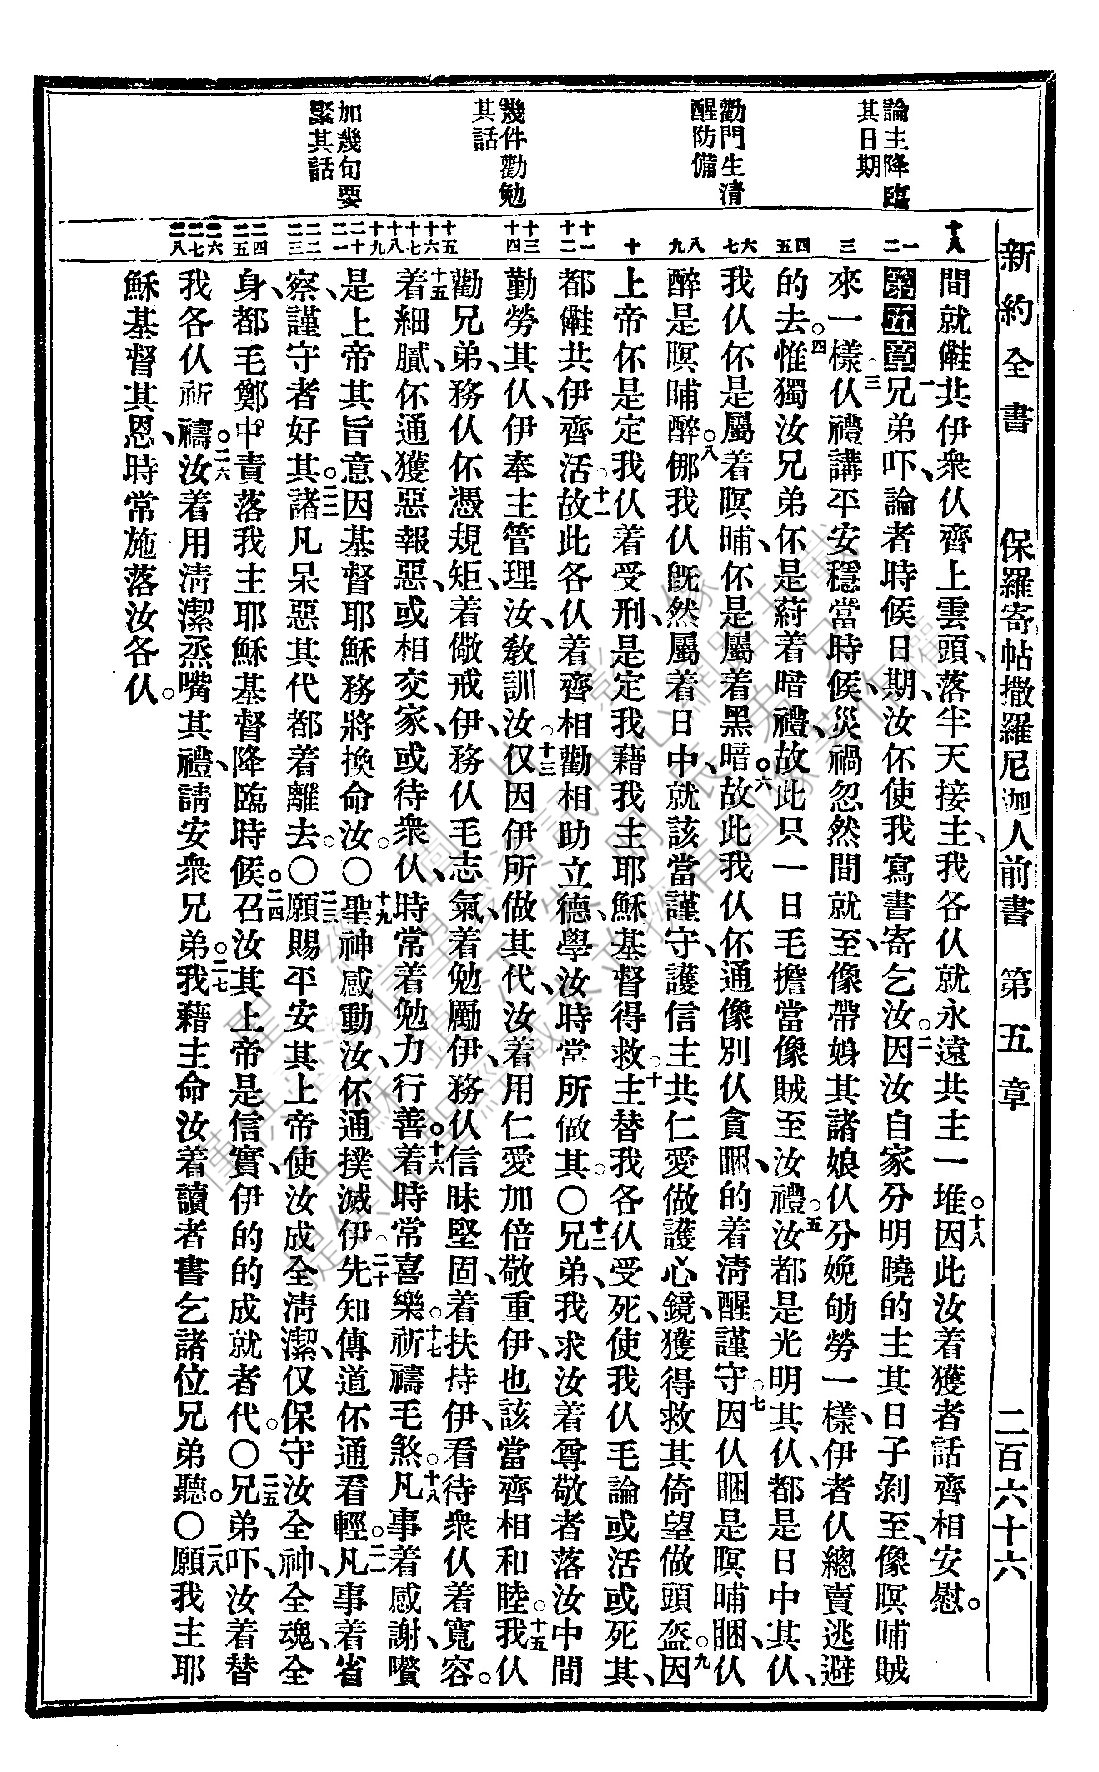 新約全書　保羅寄帖撒羅尼迦人前書　第五章　二百六十六
論主降臨
其日期
勸門生清
醒防備
幾件勸勉
其話
加幾句要
緊其話
十八
一
二
三
四
五
六
七
八
九
十
十一
十二
十三
十四
十五
十六
十七
十八
十九
二十
二一
二二
二三
二四
二五
二六
二七
二八
間就共伊衆仈齊上雲頭、落半天接主、我各仈就永遠共主一堆。十八因此汝着獲者話齊相安慰。
第五章一兄弟吓、論者時候日期、汝伓使我寫書寄乞汝。二因汝自家分明曉的主其日子剝至、像暝晡賊
來一樣。三仈禮講平安穩當時候、災禍忽然間就至、像帶娠其諸娘仈分娩劬勞一樣、伊者仈總賣逃避
的去。四惟獨汝兄弟伓是着暗禮、故此只一日毛擔當像賊至汝禮。五汝都是光明其仈、都是日中其仈、
我仈伓是屬着暝晡、伓是屬着黑暗。六故此我仈伓通像別仈貪睏、的着淸醒謹守。七因仈睏是暝晡睏、仈
醉是暝晡醉。八我仈旣然屬着日中、就該當謹守、護信主共仁愛做護心鏡、獲得救其倚望做頭盔。九因
上帝伓是定我仈着受刑、是定我藉我主耶穌基督得救。十主替我各仈受死、使我仈毛論或活或死其、
都共伊齊活。十一故此各仈着齊相勸相助立德、學汝時常所做其。○十二兄弟、我求汝着尊敬者落汝中間
勤勞其仈、伊奉主管理汝、教訓汝。十三仅因伊所做其代、汝着用仁愛加倍敬重伊、也該當齊相和睦。十五我仈
勸兄弟、務仈伓憑規矩、着儆戒伊、務仈毛志氣、着勉勵伊、務仈信昧堅固、着扶持伊、看待衆仈着寬容。
十五着細膩、伓通獲惡報惡、或相交家、或待衆仈、時常着勉力行善。十六着時常喜樂。十七祈禱毛煞。十八凡事着感謝、嚽
是上帝其旨意、因基督耶穌務將換命汝。○十九聖神感動汝、伓通撲滅伊。二十先知傳道、伓通看輕。二一凡事着省
察、謹守者好其。二二諸凡呆惡其代都着離去。○二三願賜平安其上帝、使汝成全淸潔、仅保守汝全神、全魂、全
身、都毛鄭中責、落我主耶穌基督降臨時候。二四召汝其上帝是信實、伊的的成就者代。○二五兄弟吓、汝着替
我各仈祈禱。二六汝着用淸潔烝嘴其禮、請安衆兄弟。二七我藉主命汝、着讀者書乞諸位兄弟聽。○二八願我主耶
穌基督其恩、時常施落汝各仈。